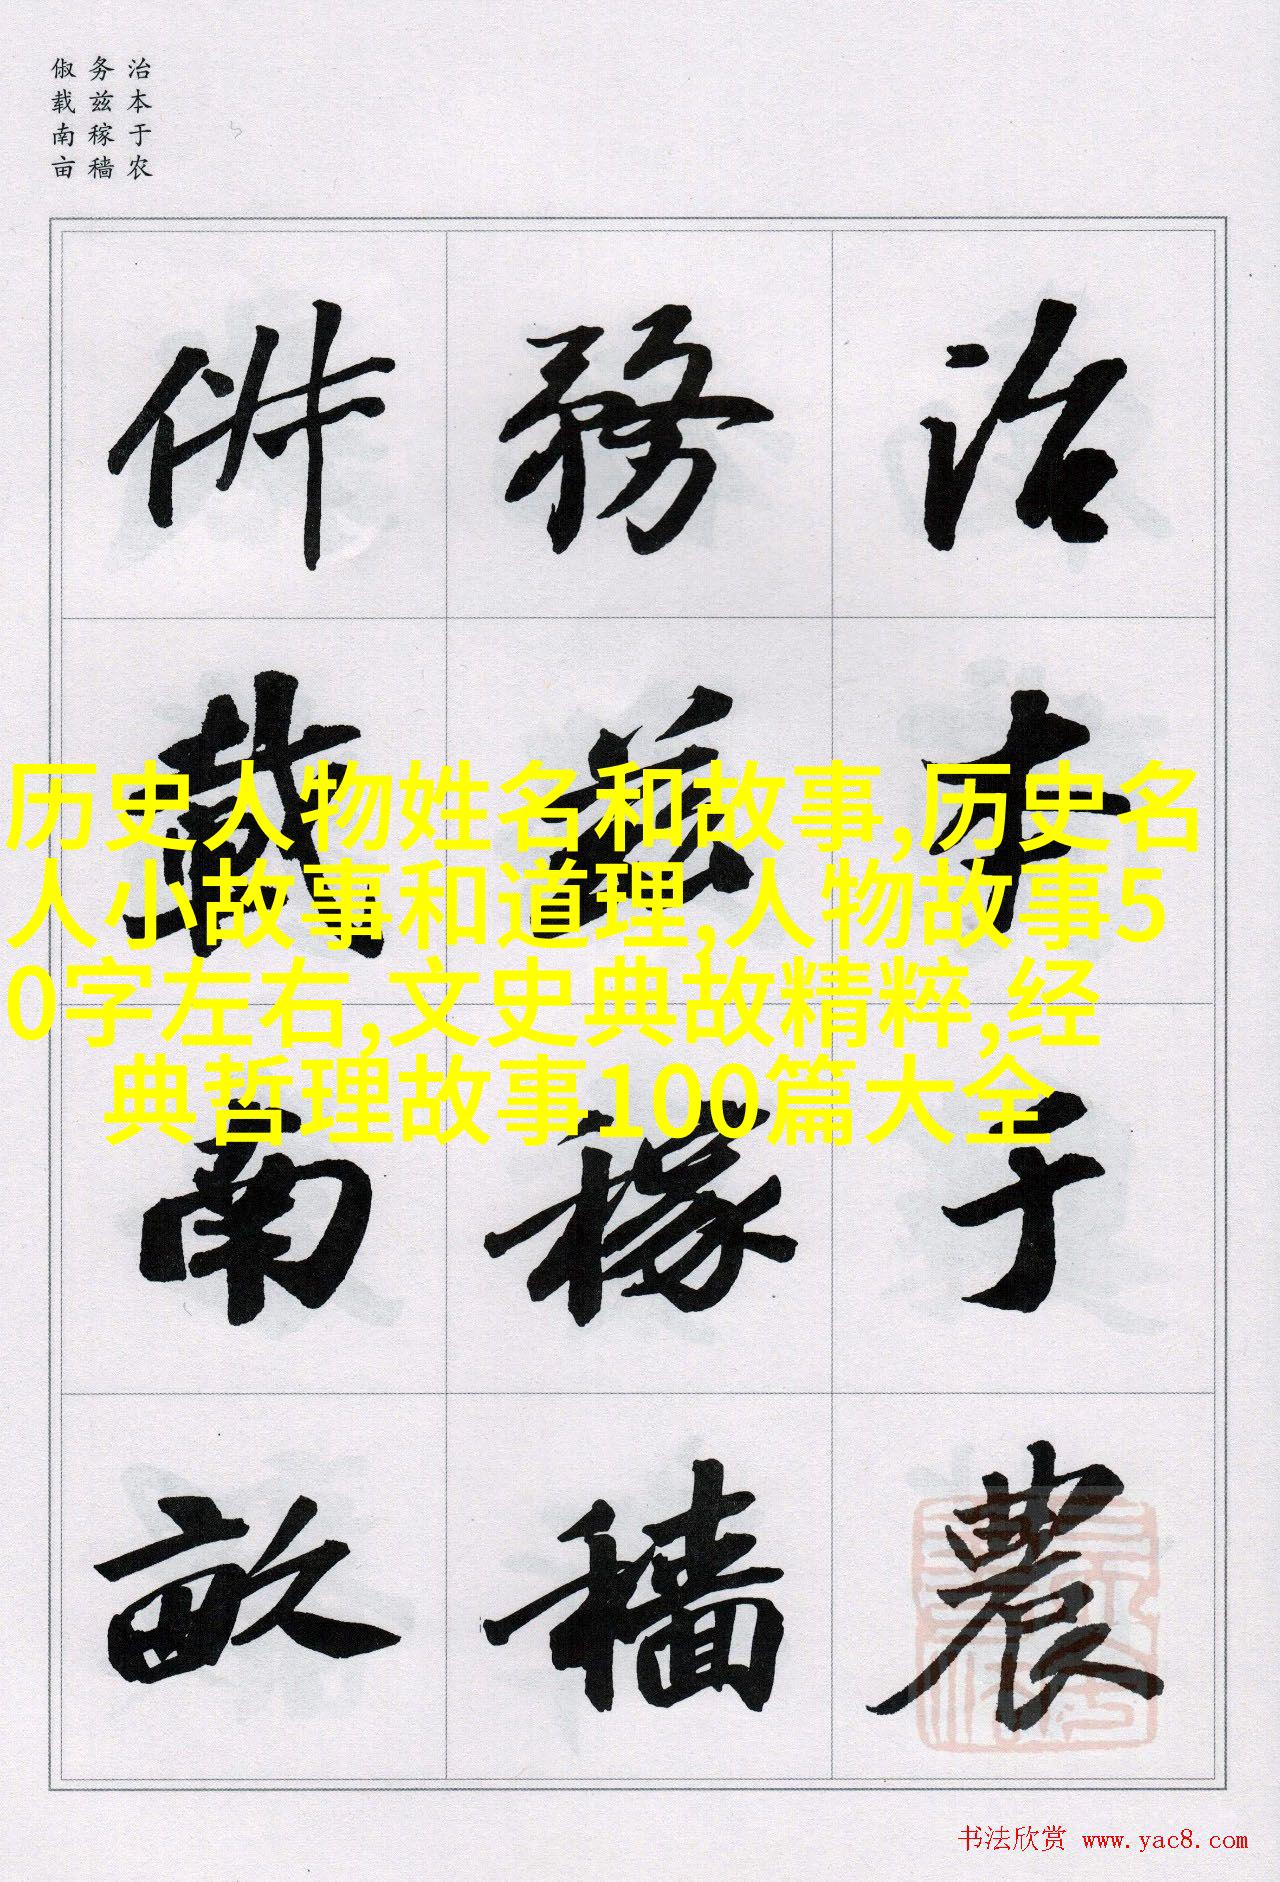 治本于农
务兹稼穑
俶载南亩
治本于農
務茲稼穡
俶載南畝
历史人物姓名和故事,历史名
人小故事和道理,人物故事5
0字左右,文史典故精粹,经
典哲理故事100篇大全
书法欣赏 www.yac8.com